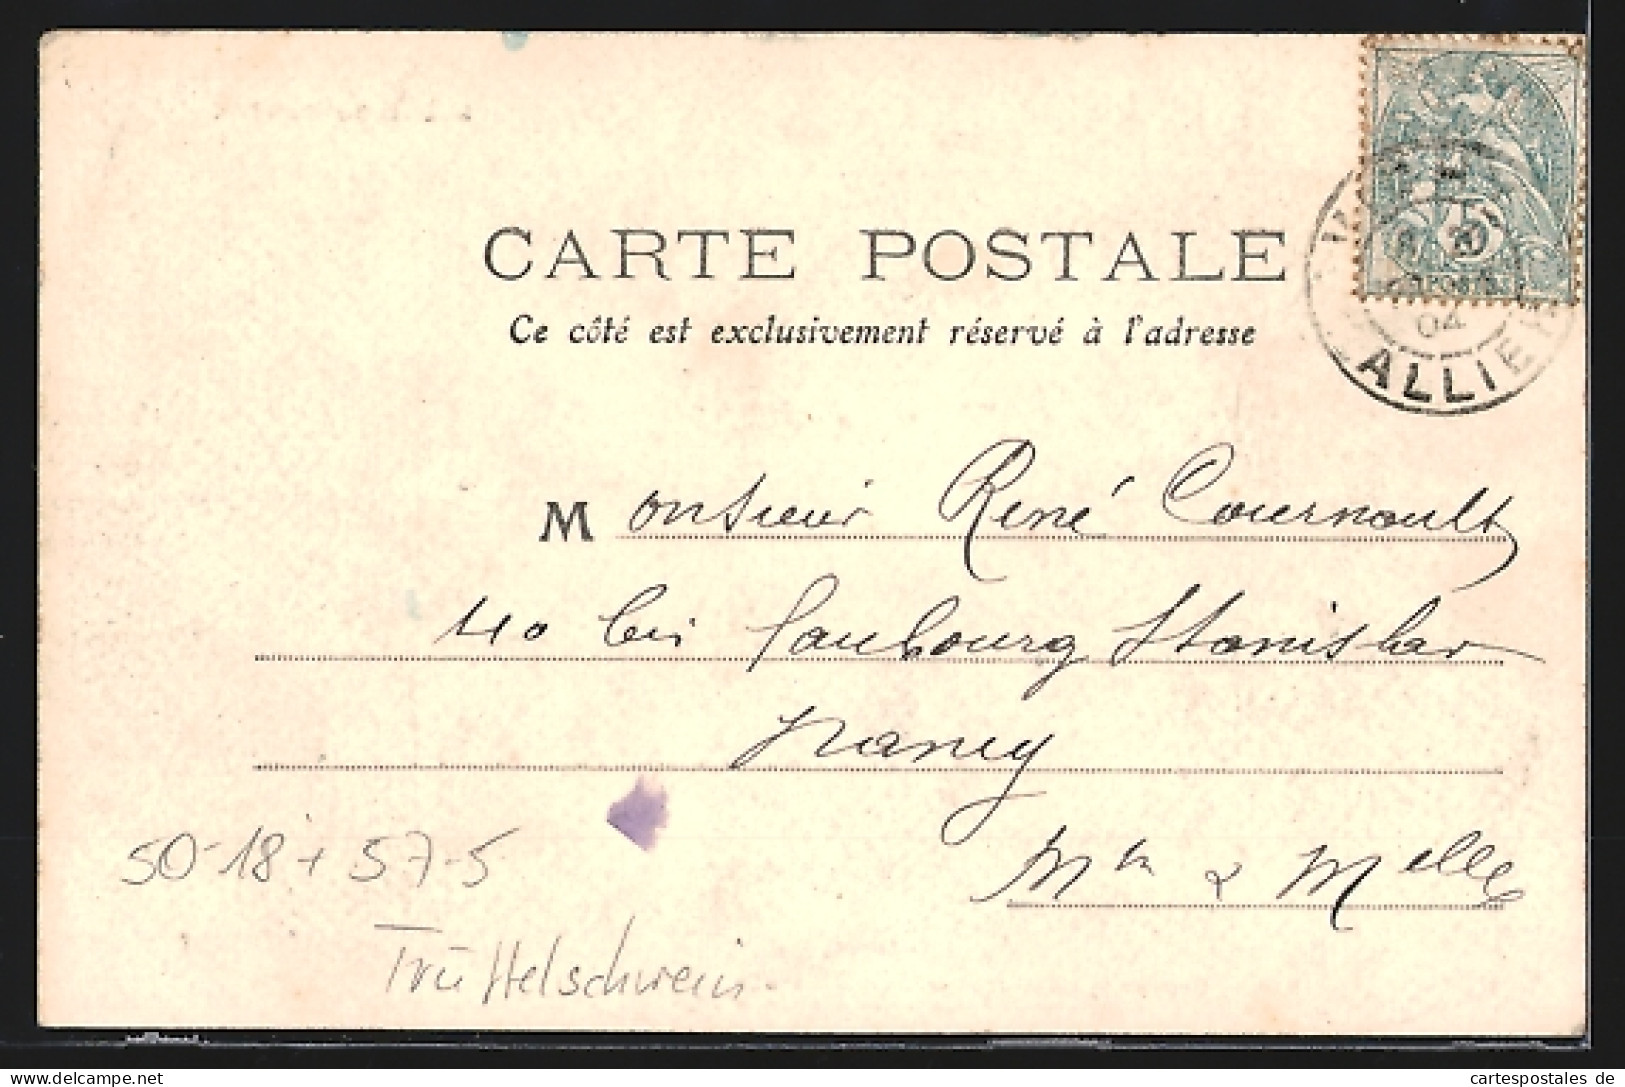 CARTE POSTALE
Ce côté est exclusivement réservé à l'adresse
04
ALLIER
Monsieur René Cournault
40 bis faubourg Stanislas
Nancy
Mthe & Meurthe
50-18+57-5
Trüffelschwein
delcampe.net
cartespostales de